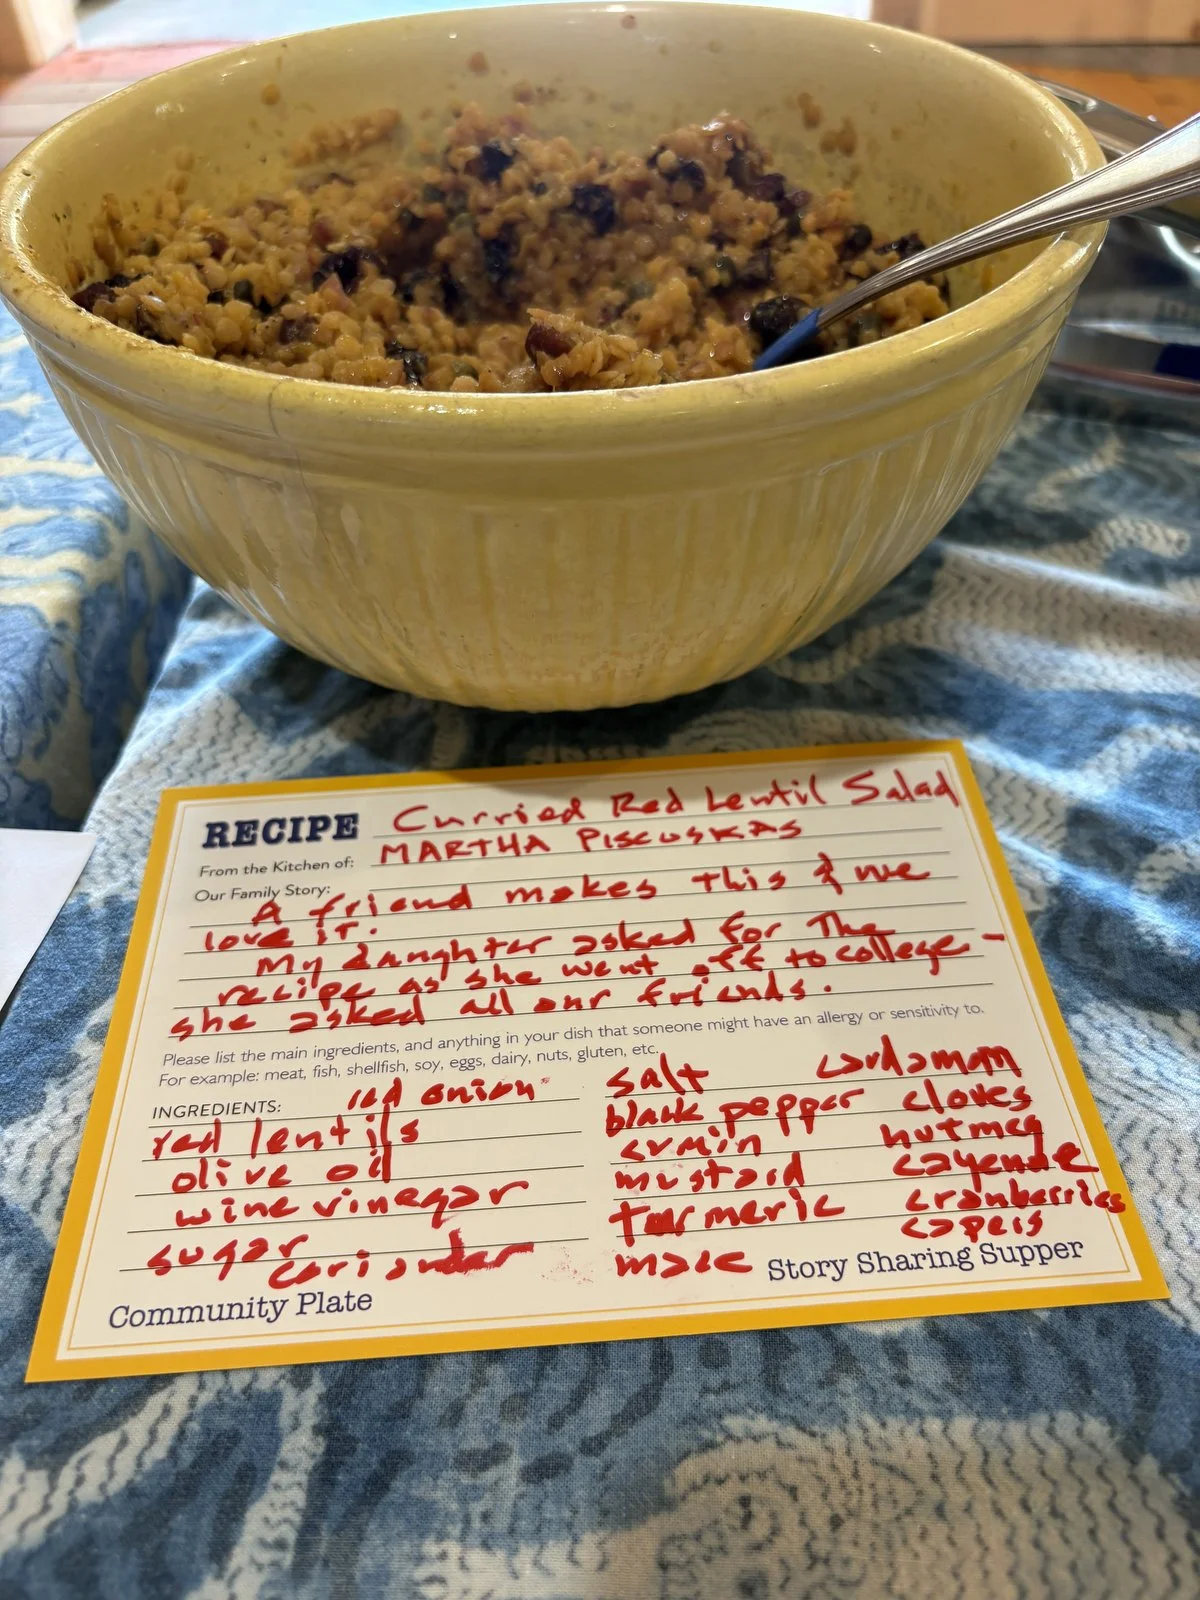 RECIPE Curried Red Lentil Salad
From the Kitchen of: MARTHA PISCUSKAS
Our Family Story:
A friend makes this & we
love it.
My daughter asked for The
recipe as she went off to college -
she asked all our friends.
Please list the main ingredients, and anything in your dish that someone might have an allergy or sensitivity to.
For example: meat, fish, shellfish, soy, eggs, dairy, nuts, gluten, etc.
INGREDIENTS: red onion
red lentils
olive oil
wine vinegar
sugar
coriander
salt
black pepper
cumin
mustard
turmeric
mace
cardamom
cloves
nutmeg
cayenne
cranberries
capers
Community Plate
Story Sharing Supper